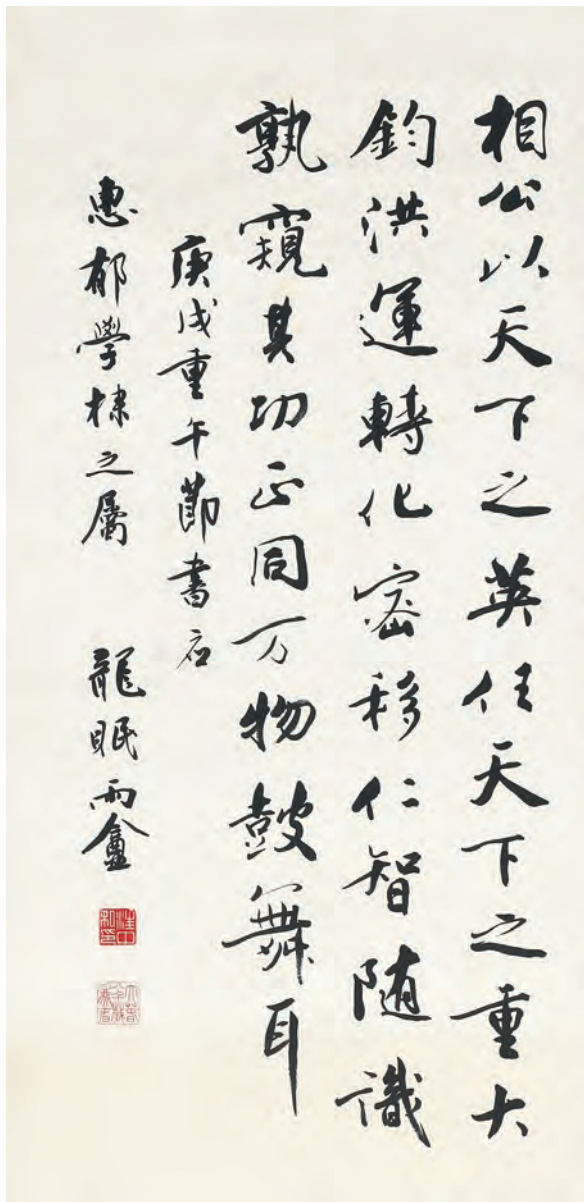 相公以天下之英任天下之重大
鈞洪運轉化密移仁智随識
孰窺其功正同万物鼓舞耳
庚戌重午節書应
惠郁學棣之屬
龍眠雨盦
汪中私印